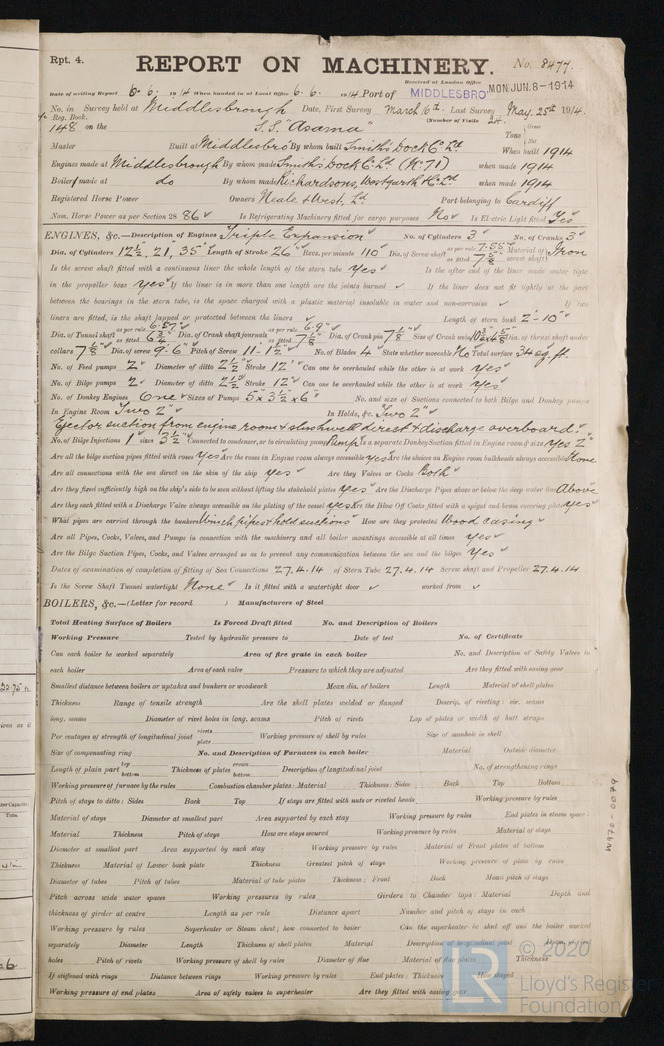 Rpt. 4.
REPORT ON MACHINERY.
No. 8477.
Received at London Office
Date of writing Report 6. 6. 1914 When handed in at Local Office 6. 6. 1914. Port of MIDDLESBRO' MON JUN. 8 - 1914
No. in Survey held at Middlesbrough Date, First Survey March 6th: Last Survey May 25th 1914.
Reg. Book. (Number of Visits 24.)
148 on the S.S. "Asama" Tons Gross Net
Master Built at Middlesbro' By whom built Smith's Dock Co Ld When built 1914
Engines made at Middlesbrough By whom made Smith's Dock Co. Ld. (No. 71) when made 1914
Boilers made at do By whom made Richardsons, Westgarth & Co. Ld when made 1914
Registered Horse Power Owners Neale & West, Ld Port belonging to Cardiff
Nom. Horse Power as per Section 28 86 Is Refrigerating Machinery fitted for cargo purposes No Is Electric Light fitted Yes
ENGINES, &c.—Description of Engines Triple Expansion No. of Cylinders 3 No. of Cranks 3
Dia. of Cylinders 12½, 21, 35" Length of Stroke 26" Revs. per minute 110 Dia. of Screw shaft as per rule 7.55" as fitted 7⅝" Material of screw shaft Iron
Is the screw shaft fitted with a continuous liner the whole length of the stern tube yes Is the after end of the liner made water tight
in the propeller boss yes If the liner is in more than one length are the joints burned If the liner does not fit tightly at the part
between the bearings in the stern tube, is the space charged with a plastic material insoluble in water and non-corrosive If two
liners are fitted, is the shaft lapped or protected between the liners Length of stern bush 2'-10"
Dia. of Tunnel shaft as per rule 6.57" as fitted 6¾" Dia. of Crank shaft journals as per rule 6.9" as fitted 7⅛" Dia. of Crank pin 7⅛" Size of Crank webs Dia. of thrust shaft under
collars 7⅛" Dia. of screw 9'-6" Pitch of Screw 11'-1½" No. of Blades 4 State whether moveable No Total surface 34 sq. ft.
No. of Feed pumps 2 Diameter of ditto 2½" Stroke 12" Can one be overhauled while the other is at work yes
No. of Bilge pumps 2 Diameter of ditto 2½" Stroke 12" Can one be overhauled while the other is at work yes
No. of Donkey Engines One Sizes of Pumps 5" x 3½" x 6" No. and size of Suctions connected to both Bilge and Donkey pumps
In Engine Room Two 2" In Holds, &c. Two 2"
Ejector suction from engine room & slushwell direct & discharge overboard.
No. of Bilge Injections 1 sizes 3½" Connected to condenser, or to circulating pump Pump Is a separate Donkey Suction fitted in Engine room & size yes 2"
Are all the bilge suction pipes fitted with roses yes Are the roses in Engine room always accessible yes Are the sluices on Engine room bulkheads always accessible None
Are all connections with the sea direct on the skin of the ship yes Are they Valves or Cocks Both
Are they fixed sufficiently high on the ship's side to be seen without lifting the stokehold plates yes Are the Discharge Pipes above or below the deep water line Above
Are they each fitted with a Discharge Valve always accessible on the plating of the vessel yes Are the Blow Off Cocks fitted with a spigot and brass covering plate yes
What pipes are carried through the bunkers Winch pipes & hold suctions How are they protected Wood casing
Are all Pipes, Cocks, Valves, and Pumps in connection with the machinery and all boiler mountings accessible at all times yes
Are the Bilge Suction Pipes, Cocks, and Valves arranged so as to prevent any communication between the sea and the bilges yes
Dates of examination of completion of fitting of Sea Connections 27.4.14 of Stern Tube 27.4.14 Screw shaft and Propeller 27.4.14
Is the Screw Shaft Tunnel watertight None Is it fitted with a watertight door worked from
BOILERS, &c.—(Letter for record ) Manufacturers of Steel
Total Heating Surface of Boilers Is Forced Draft fitted No. and Description of Boilers
Working Pressure Tested by hydraulic pressure to Date of test No. of Certificate
Can each boiler be worked separately Area of fire grate in each boiler No. and Description of Safety Valves to
each boiler Area of each valve Pressure to which they are adjusted Are they fitted with easing gear
Smallest distance between boilers or uptakes and bunkers or woodwork Mean dia. of boilers Length Material of shell plates
Thickness Range of tensile strength Are the shell plates welded or flanged Descrip. of riveting: cir. seams
long. seams Diameter of rivet holes in long. seams Pitch of rivets Lap of plates or width of butt straps
Per centages of strength of longitudinal joint rivets plate Working pressure of shell by rules Size of manhole in shell
Size of compensating ring No. and Description of Furnaces in each boiler Material Outside diameter
Length of plain part top bottom Thickness of plates crown bottom Description of longitudinal joint No. of strengthening rings
Working pressure of furnace by the rules Combustion chamber plates: Material Thickness: Sides Back Top Bottom
Pitch of stays to ditto: Sides Back Top If stays are fitted with nuts or riveted heads Working pressure by rules
Material of stays Diameter at smallest part Area supported by each stay Working pressure by rules End plates in steam space:
Material Thickness Pitch of stays How are stays secured Working pressure by rules Material of stays
Diameter at smallest part Area supported by each stay Working pressure by rules Material of Front plates at bottom
Thickness Material of Lower back plate Thickness Greatest pitch of stays Working pressure of plate by rules
Diameter of tubes Pitch of tubes Material of tube plates Thickness: Front Back Mean pitch of stays
Pitch across wide water spaces Working pressures by rules Girders to Chamber tops: Material Depth and
thickness of girder at centre Length as per rule Distance apart Number and pitch of stays in each
Working pressure by rules Superheater or Steam chest; how connected to boiler Can the superheater be shut off and the boiler worked
separately Diameter Length Thickness of shell plates Material Description of longitudinal joint Diam. of rivet
holes Pitch of rivets Working pressure of shell by rules Diameter of flue Material of flue plates Thickness
If stiffened with rings Distance between rings Working pressure by rules End plates: Thickness How stayed
Working pressure of end plates Area of safety valves to superheater Are they fitted with easing gear
W970-0079
© 2020
LR
Lloyd's Register
Foundation